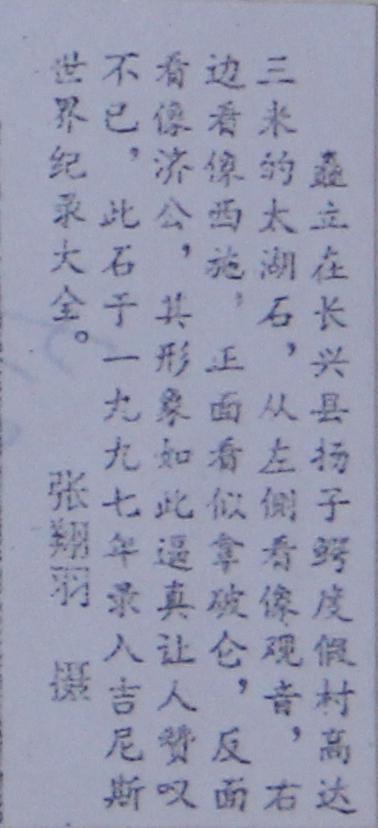 矗立在长兴县扬子鳄度假村高达
三米的太湖石，从左侧看像观音，右
边看像西施，正面看似拿破仑，反面
看像济公，其形象如此逼真让人赞叹
不已，此石于一九九七年录入吉尼斯
世界纪录大全。
张翔羽 摄